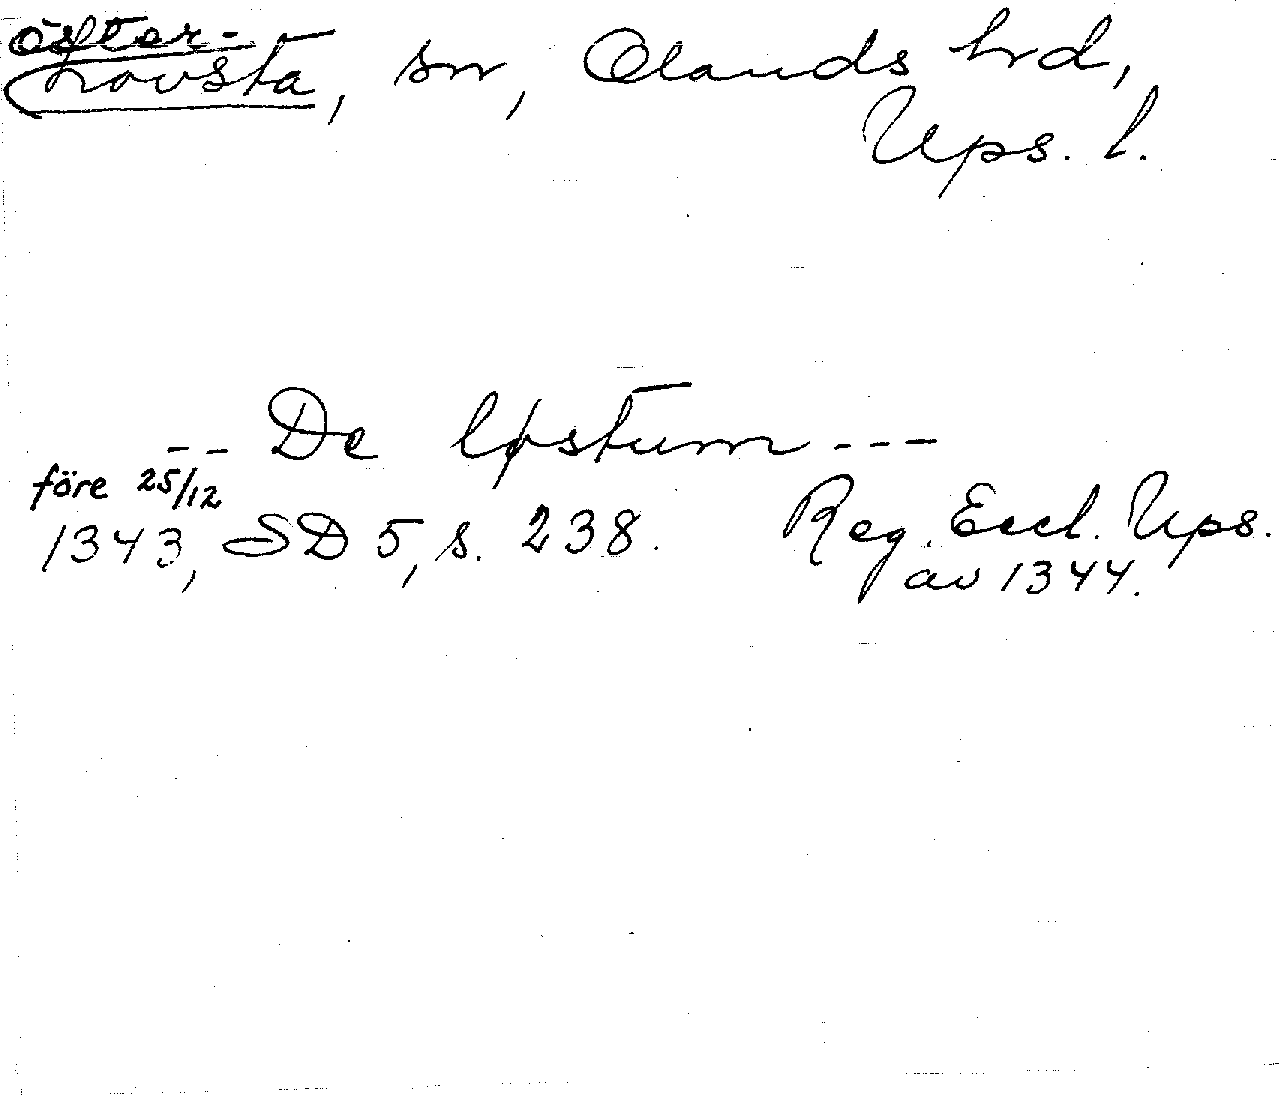 Öster-
Lovsta, sn, Olands hrd,
Ups. l.
-- De løstum ---
före 25/12
1343, SD 5, s. 238. Reg. Eccl. Ups.
av 1344.